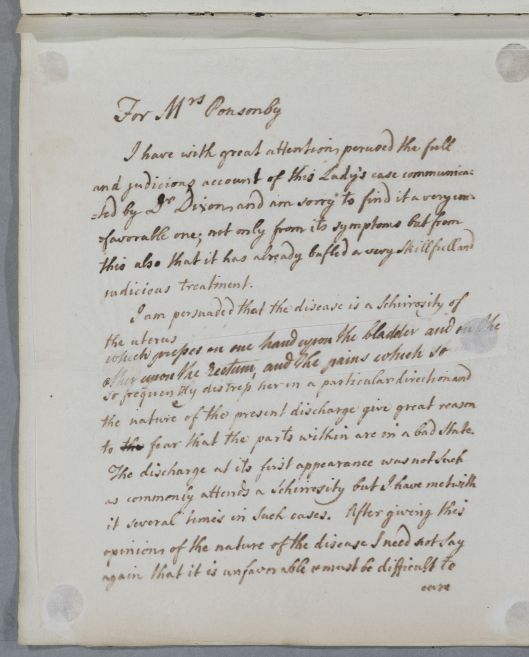 For Mrs Ponsonby
I have with great attention perused the full
and judicious account of this Lady's case communica:
:ted by Dr Dixon, and am sorry to find it a very un=
=favorable one; not only from its symptoms but from
this also that it has already bafled a very skillfull and
judicious treatment.
I am persuaded that the disease is a Schirrosity of
the uterus
which presses on one hand upon the bladder and on the
other upon the rectum, and the pains which so
so frequently distress her in a particular direction and
the nature of the present discharge give great reason
to the fear that the parts within are in a bad state.
The discharge at its first appearance was not such
as commonly attends a Schirrosity but I have met with
it several times in such cases. After giving this
opinion of the nature of the disease I need not say
again that it is unfavorable & must be difficult to
cure